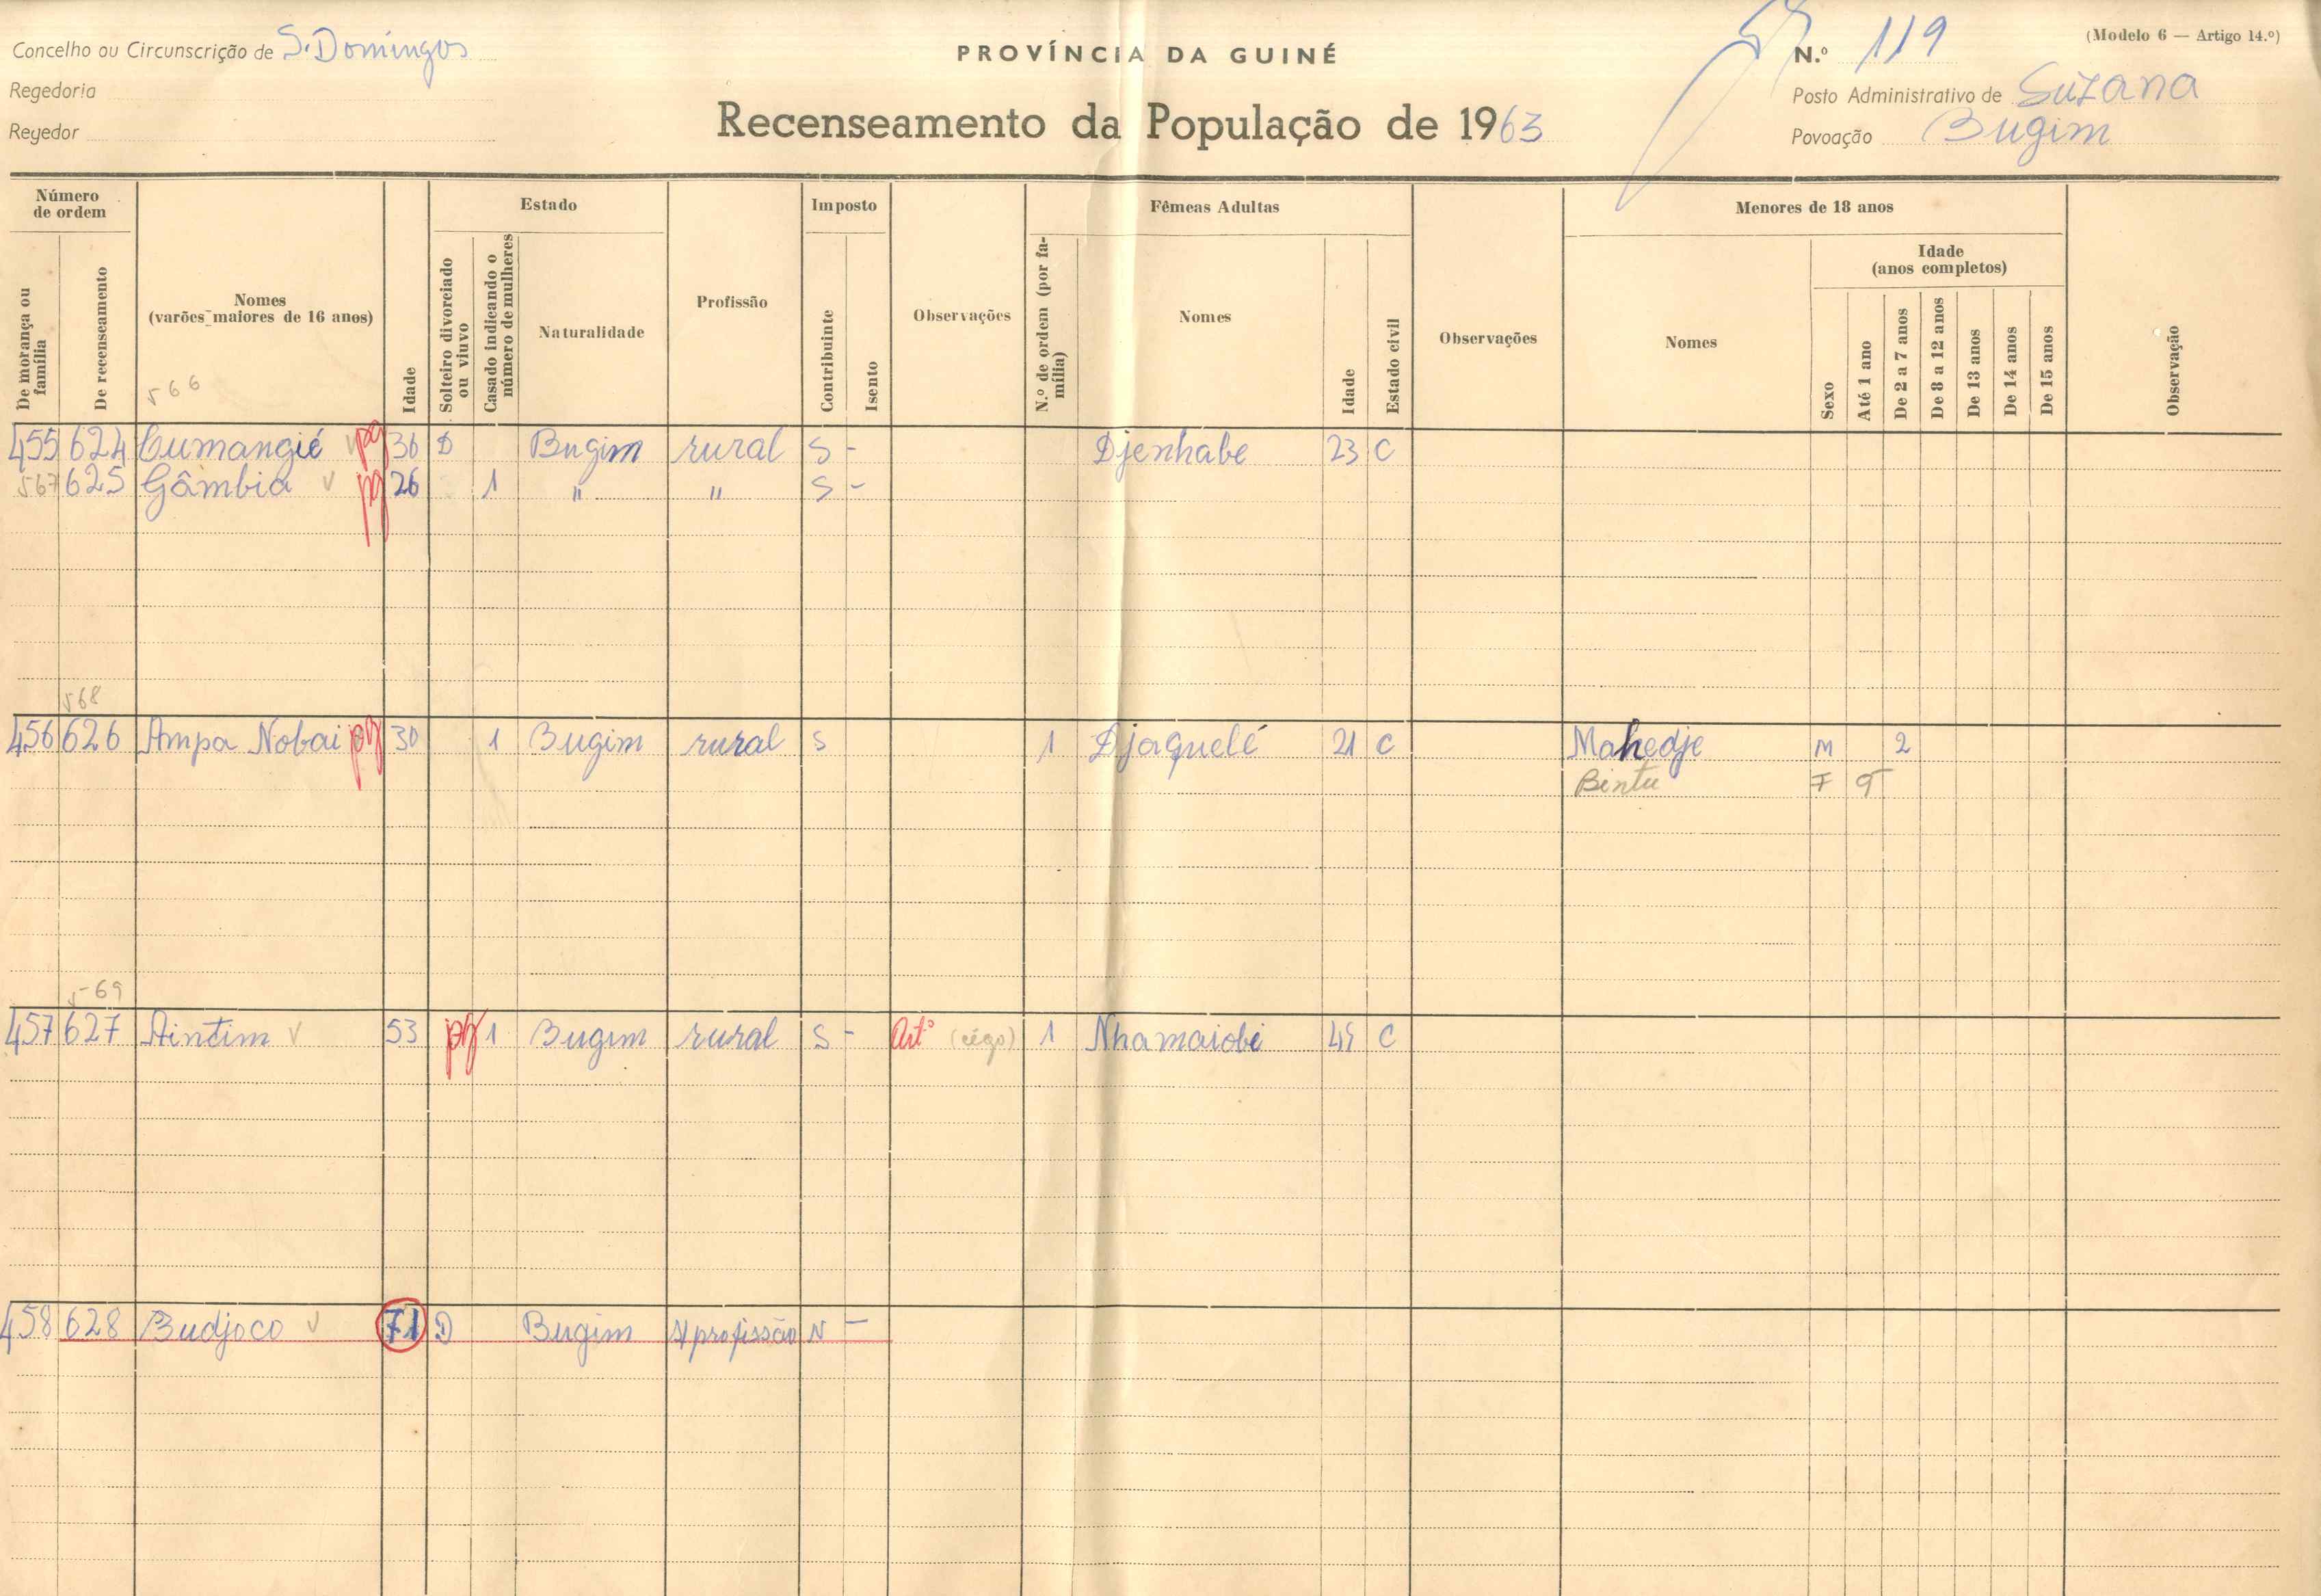 Concelho ou Circunscrição de S. Domingos
PROVÍNCIA DA GUINÉ
N.º 119
(Modelo 6 — Artigo 14.º)
Regedoria
Posto Administrativo de Suzana
Regedor
Recenseamento da População de 1963
Povoação Bugim
Número de ordem
Estado
Imposto
Fêmeas Adultas
Menores de 18 anos
De morança ou família
De recenseamento
Nomes
(varões maiores de 16 anos)
566
Idade
Solteiro divorciado ou viuvo
Casado indicando o número de mulheres
Naturalidade
Profissão
Contribuinte
Isento
Observações
N.º de ordem (por família)
Nomes
Idade
Estado civil
Observações
Nomes
Sexo
Idade
(anos completos)
Até 1 ano
De 2 a 7 anos
De 8 a 12 anos
De 13 anos
De 14 anos
De 15 anos
Observação
455 624 Cumangié pg 36 D Bugim rural S - Djenhabe 23 C
567 625 Gâmbia v pg 26 1 " " S -
568
456 626 Ampa Nobai pg 30 1 Bugim rural S 1 Djaquelé 21 C Mahedje M 2
Bintu F
569
457 627 Aintim v 53 pg 1 Bugim rural S - Artº (cégo) 1 Nhamaiobé 45 C
458 628 Budjoco v 71 D Bugim S/profissão N -